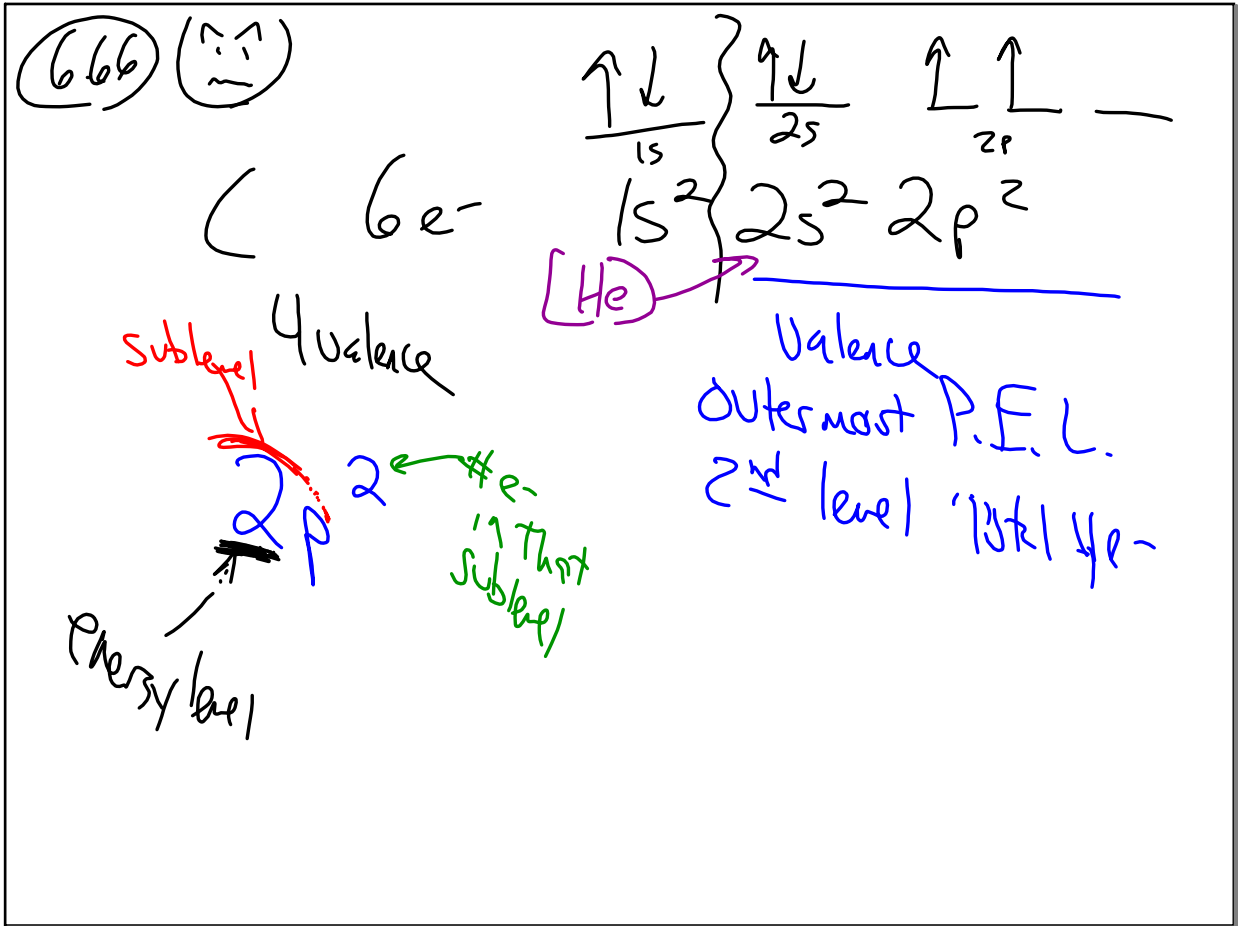 6.66
↑↓ ↑↓ ↑ ↑
1s 2s 2p
C 6e- 1s² 2s² 2p²
[He]
4 valence
Valence
outermost P.E.L.
2nd level total 4e-
sublevel
2p²
# e-
in that
sublevel
energy level